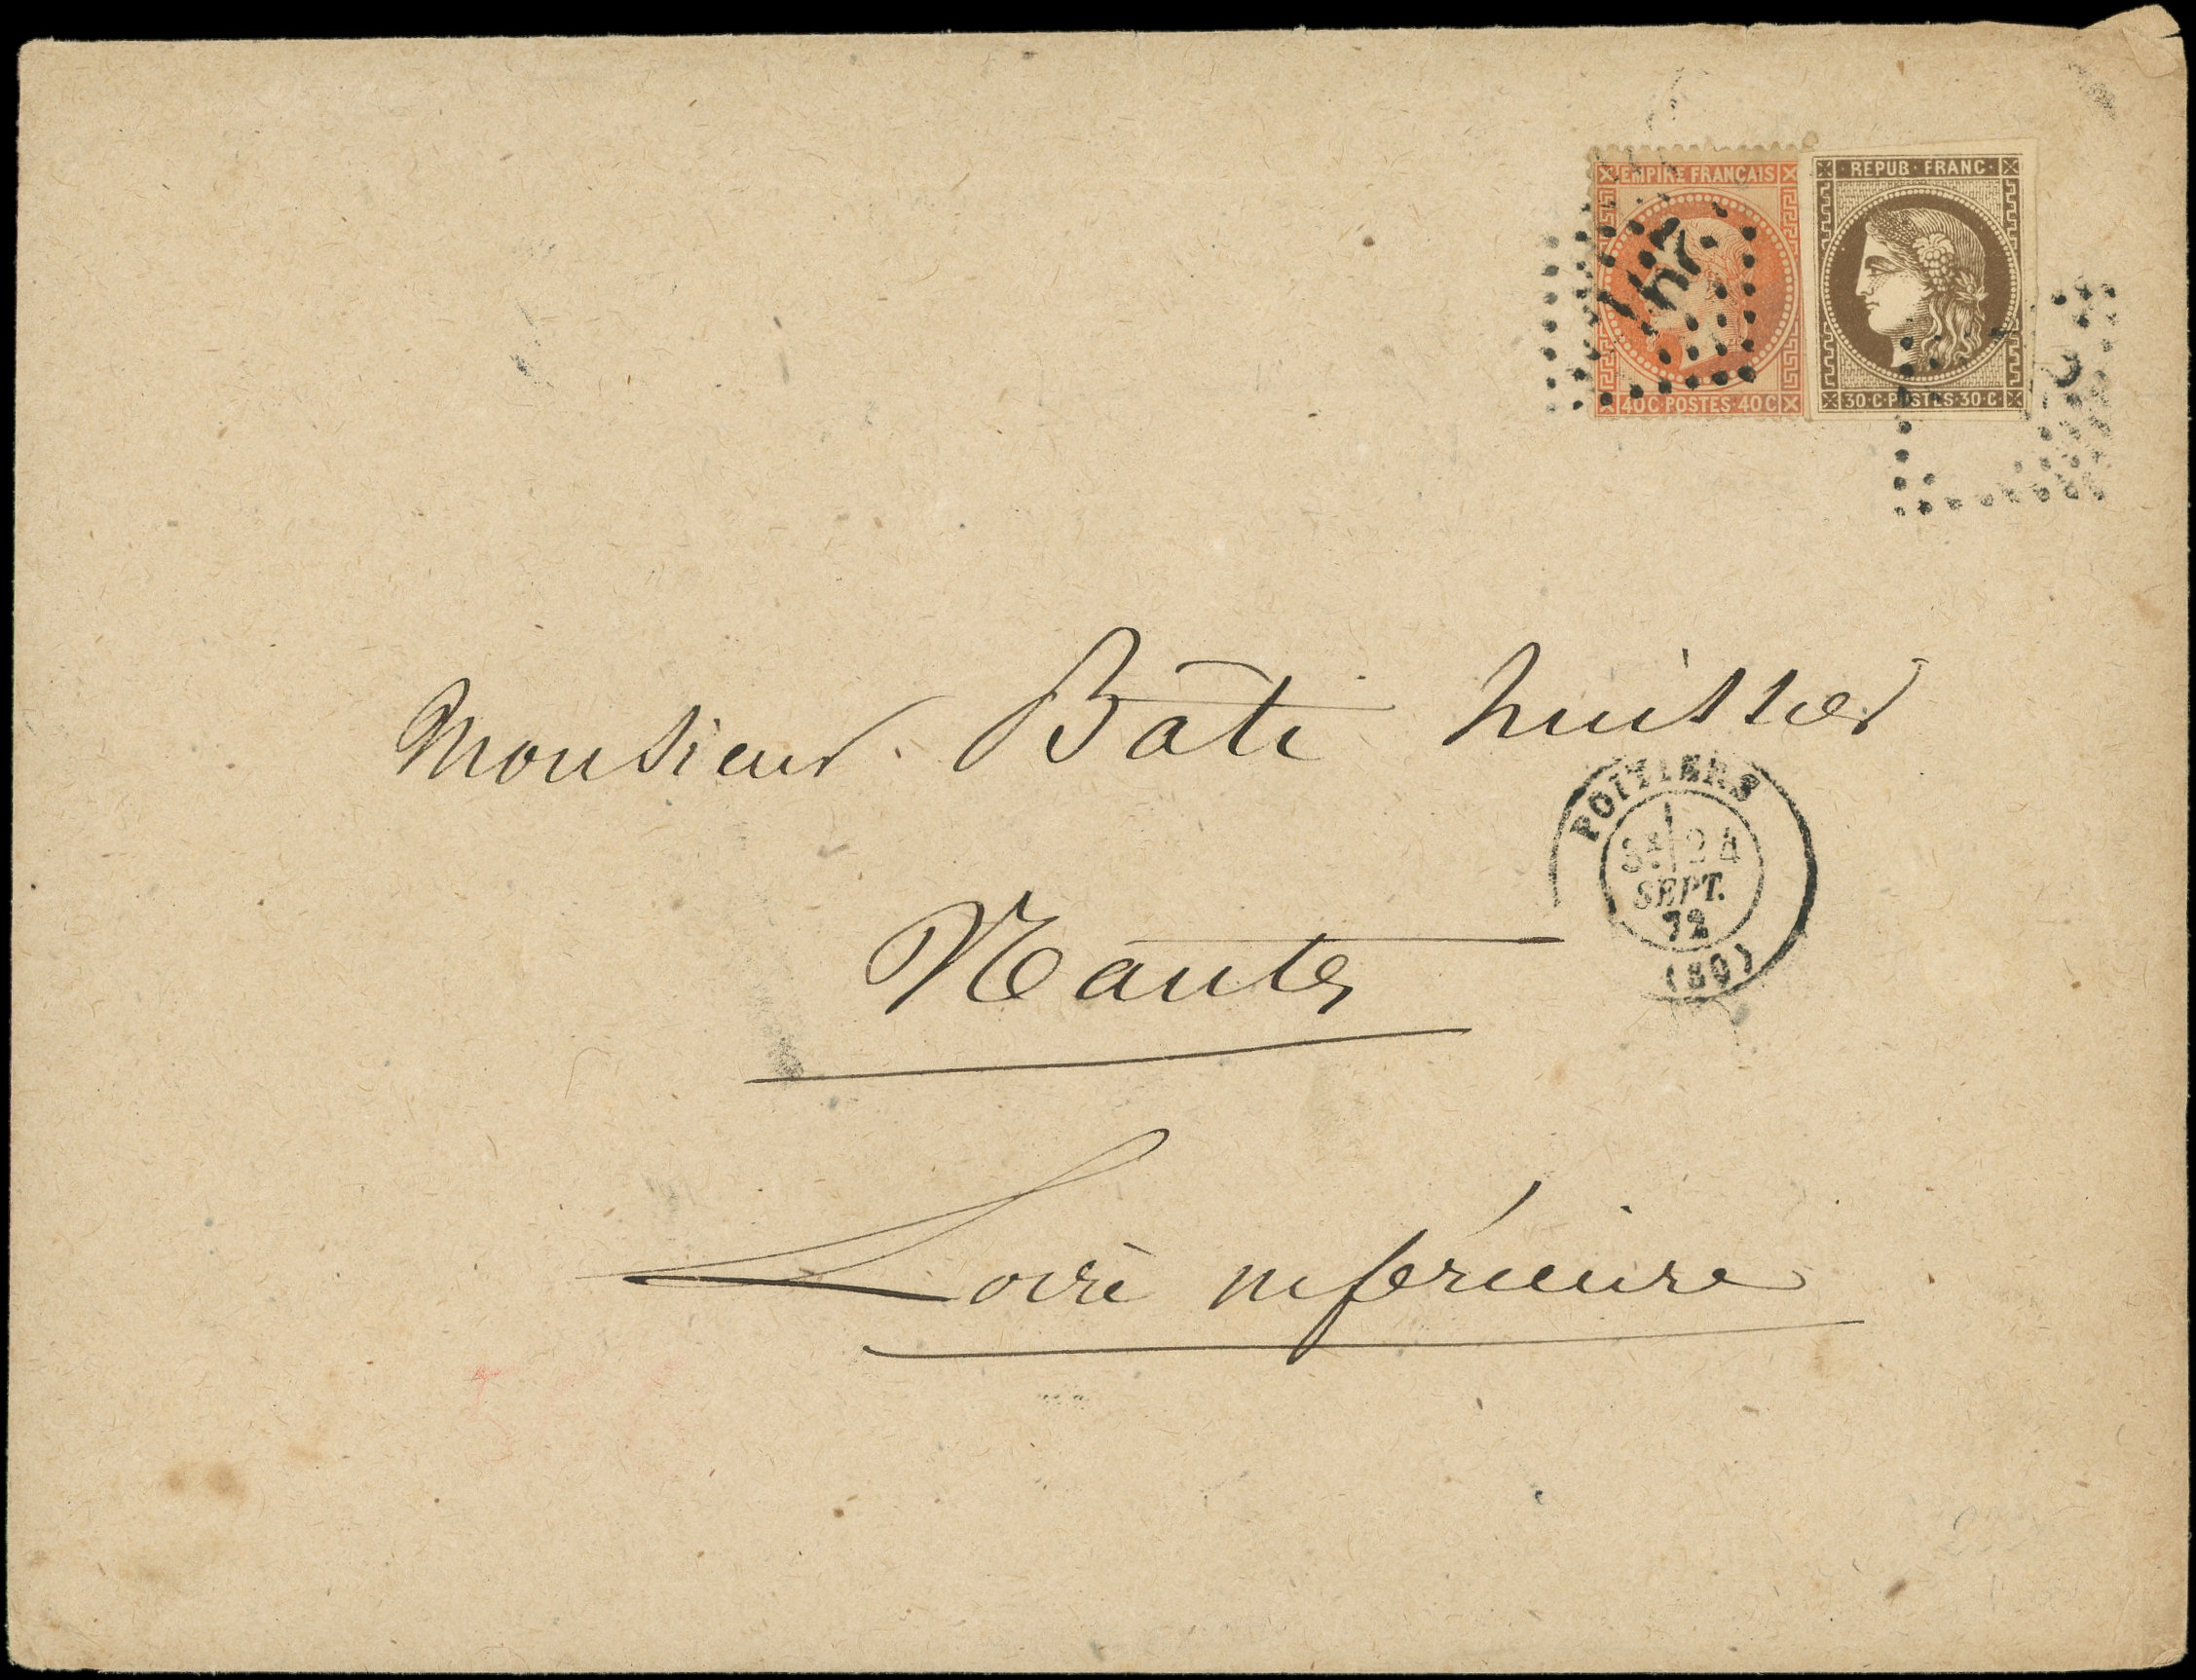 EMPIRE FRANÇAIS
40 C·POSTES·40 C
REPUB·FRANC·
30·C·POSTES·30·C
Monsieur Bâti huissier
POITIERS
24
SEPT.
72
Nantes
Loire inférieure